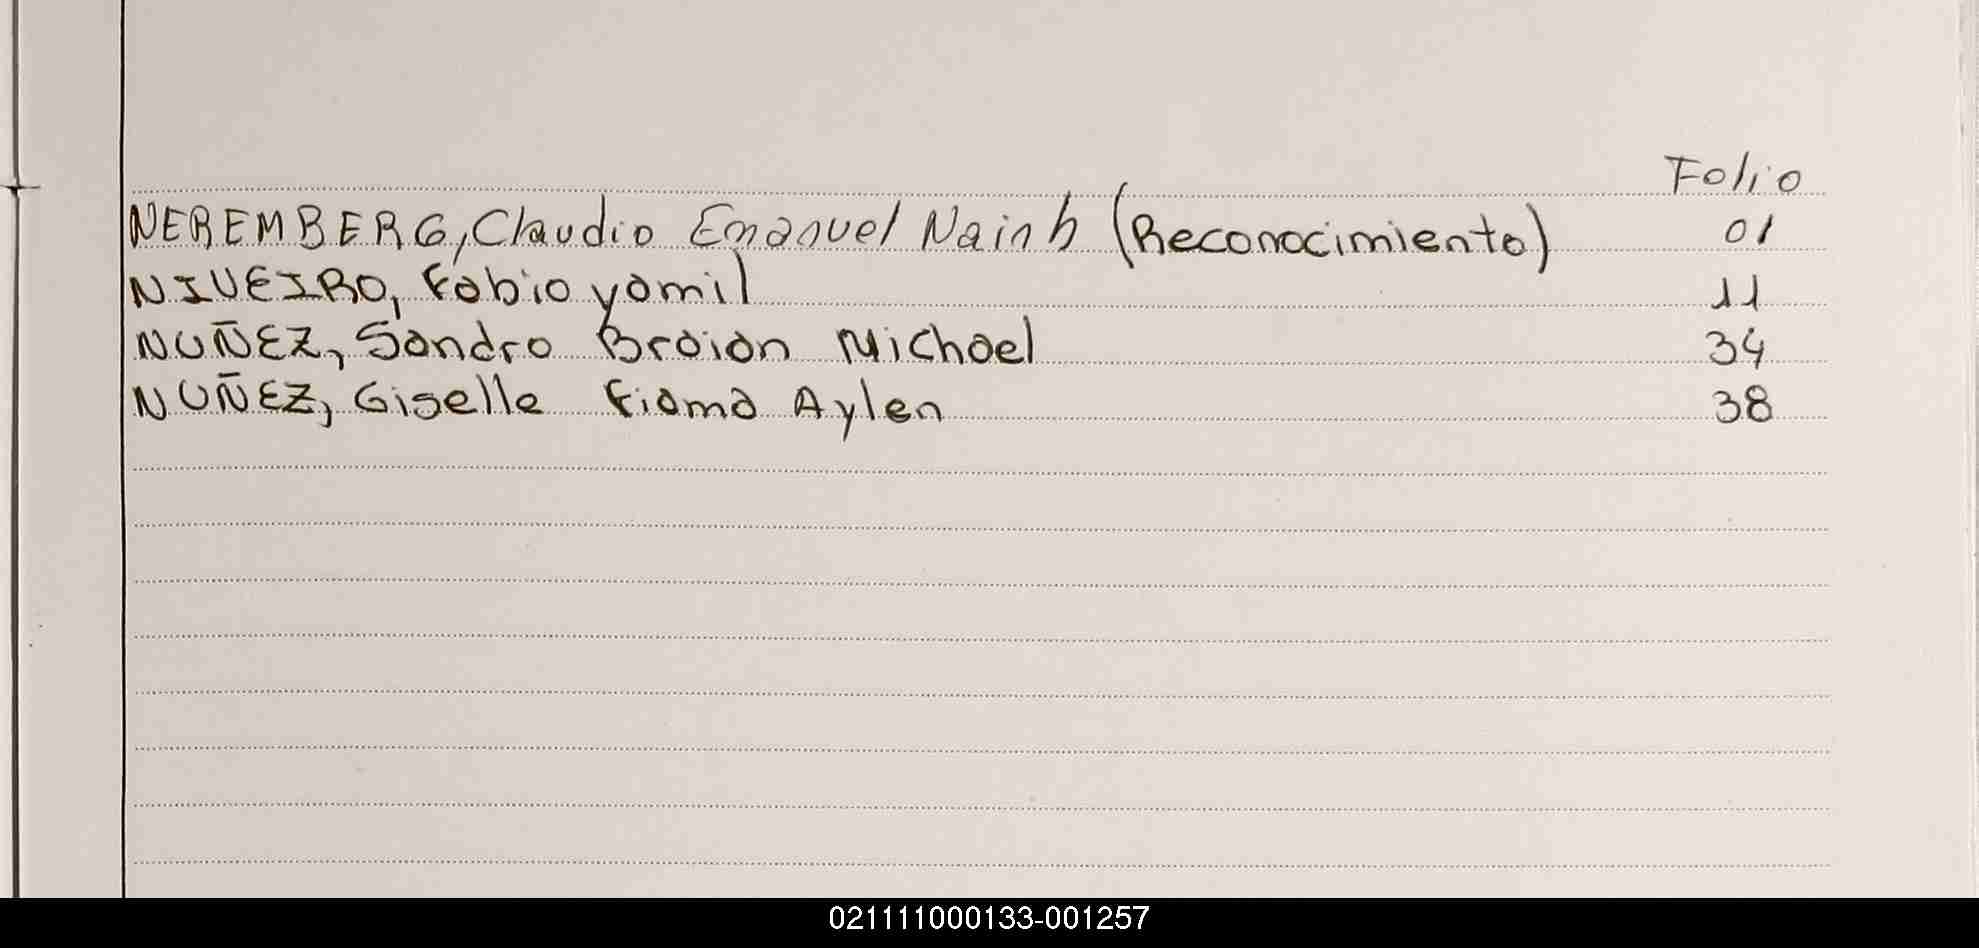 Folio
NEREMBERG, Claudio Emanuel Nainh (Reconocimiento) 01
NIVEIRO, Fabio yamil 11
NUÑEZ, Sandro Braian Michael 34
NUÑEZ, Giselle Fiama Aylen 38
021111000133-001257